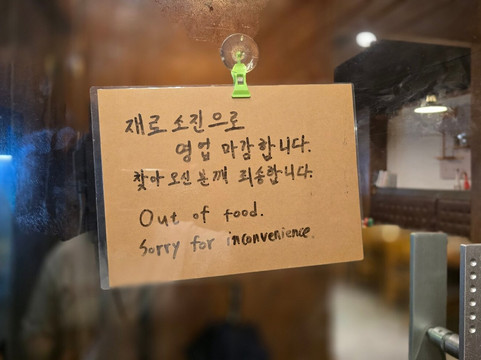 재료 소진으로
영업 마감합니다.
찾아 오신 분께 죄송합니다.
Out of food.
Sorry for inconvenience.